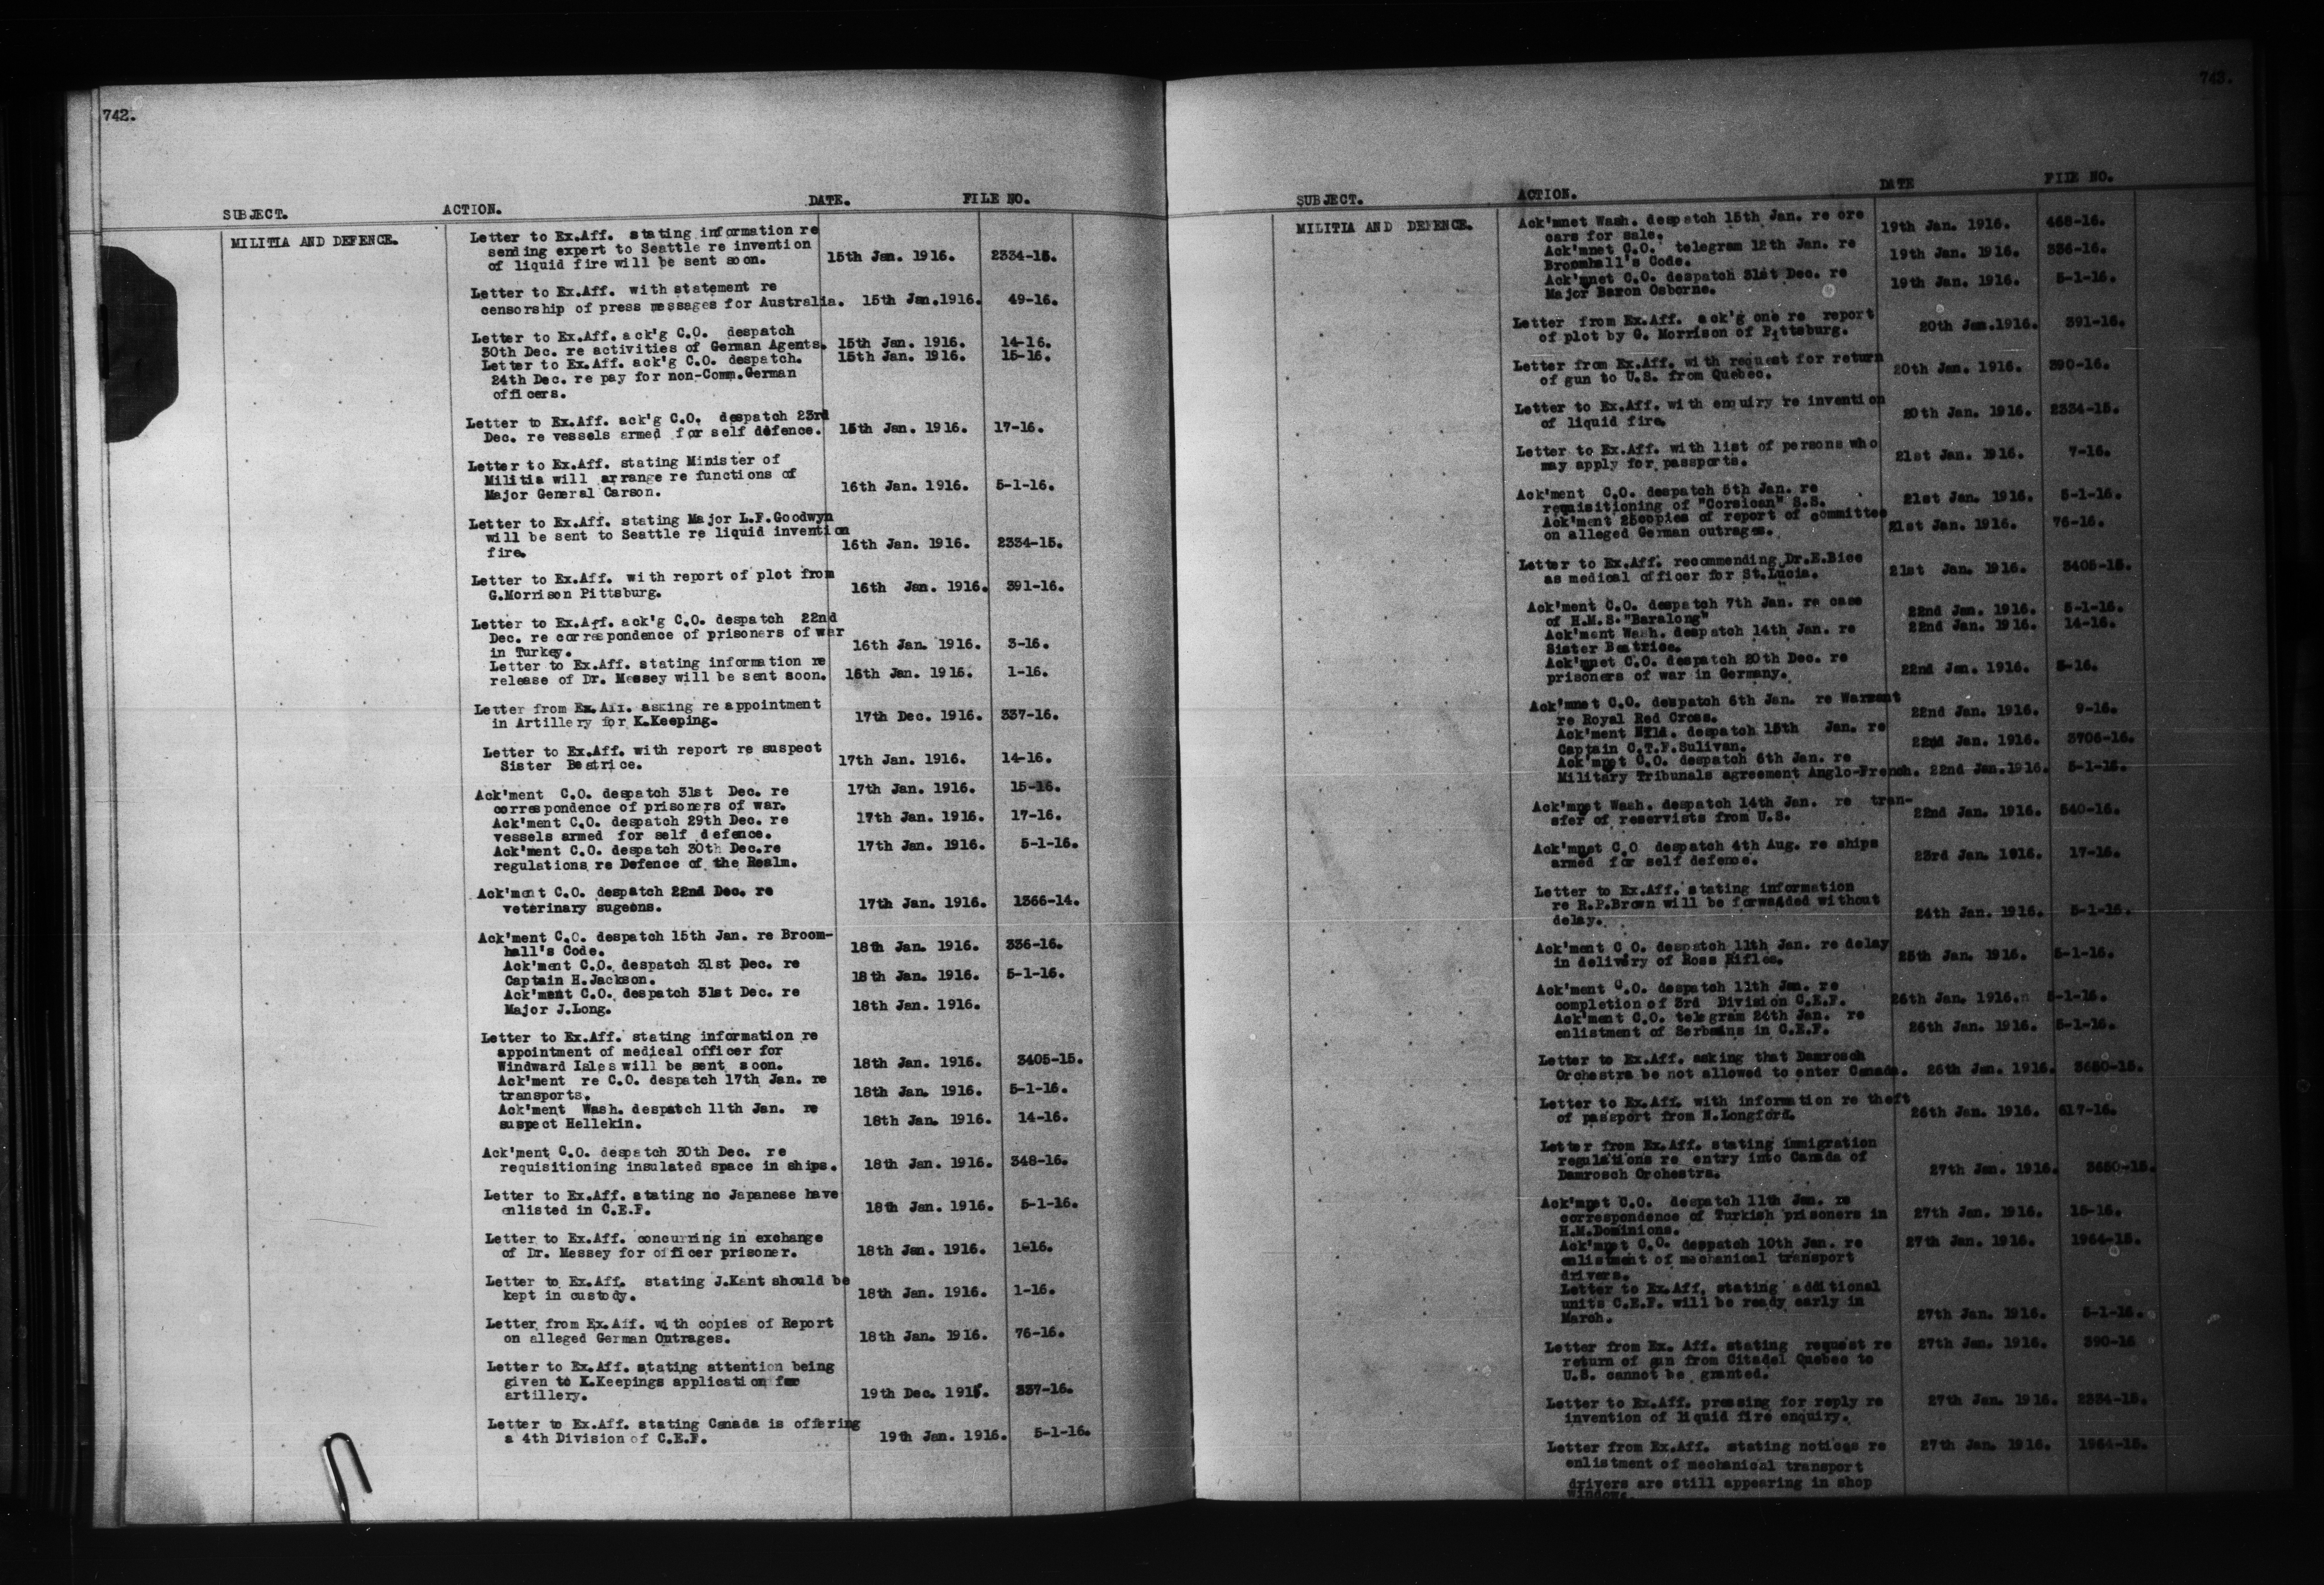 742.
SUBJECT. ACTION. DATE. FILE NO.
MILITIA AND DEFENCE. Letter to Ex.Aff. stating information re
sending expert to Seattle re invention
of liquid fire will be sent soon. 15th Jan. 1916. 2334-15.
Letter to Ex.Aff. with statement re
censorship of press messages for Australia. 15th Jan.1916. 49-16.
Letter to Ex.Aff. ack'g C.O. despatch
30th Dec. re activities of German Agents. 15th Jan. 1916. 14-16.
Letter to Ex.Aff. ack'g C.O. despatch. 15th Jan. 1916. 15-16.
24th Dec. re pay for non-Comm.German
officers.
Letter to Ex.Aff. ack'g C.O. despatch 23rd
Dec. re vessels armed for self defence. 15th Jan. 1916. 17-16.
Letter to Ex.Aff. stating Minister of
Militia will arrange re functions of
Major General Carson. 16th Jan. 1916. 5-1-16.
Letter to Ex.Aff. stating Major L.F.Goodwyn
will be sent to Seattle re liquid invention
fire. 16th Jan. 1916. 2334-15.
Letter to Ex.Aff. with report of plot from
G.Morrison Pittsburg. 16th Jan. 1916. 391-16.
Letter to Ex.Aff. ack'g C.O. despatch 22nd
Dec. re correspondence of prisoners of war
in Turkey. 16th Jan. 1916. 3-16.
Letter to Ex.Aff. stating information re
release of Dr. Messey will be sent soon. 16th Jan. 1916. 1-16.
Letter from Ex.Aff. asking re appointment
in Artillery for K.Keeping. 17th Dec. 1916. 337-16.
Letter to Ex.Aff. with report re suspect
Sister Beatrice. 17th Jan. 1916. 14-16.
Ack'ment C.O. despatch 31st Dec. re 17th Jan. 1916. 15-16.
correspondence of prisoners of war.
Ack'ment C.O. despatch 29th Dec. re 17th Jan. 1916. 17-16.
vessels armed for self defence.
Ack'ment C.O. despatch 30th Dec.re 17th Jan. 1916. 5-1-16.
regulations re Defence of the Realm.
Ack'ment C.O. despatch 22nd Dec. re
veterinary sugeons. 17th Jan. 1916. 1366-14.
Ack'ment C.O. despatch 15th Jan. re Broom-
hall's Code. 18th Jan. 1916. 336-16.
Ack'ment C.O. despatch 31st Dec. re
Captain H.Jackson. 18th Jan. 1916. 5-1-16.
Ack'ment C.O. despatch 31st Dec. re
Major J.Long. 18th Jan. 1916.
Letter to Ex.Aff. stating information re
appointment of medical officer for
Windward Isles will be sent soon. 18th Jan. 1916. 3405-15.
Ack'ment re C.O. despatch 17th Jan. re
transports. 18th Jan. 1916. 5-1-16.
Ack'ment Wash. despatch 11th Jan. re
suspect Hellekin. 18th Jan. 1916. 14-16.
Ack'ment C.O. despatch 30th Dec. re
requisitioning insulated space in ships. 18th Jan. 1916. 348-16.
Letter to Ex.Aff. stating no Japanese have
enlisted in C.E.F. 18th Jan. 1916. 5-1-16.
Letter to Ex.Aff. concurring in exchange
of Dr. Messey for officer prisoner. 18th Jan. 1916. 1-16.
Letter to Ex.Aff. stating J.Kant should be
kept in custody. 18th Jan. 1916. 1-16.
Letter from Ex.Aff. with copies of Report
on alleged German Outrages. 18th Jan. 1916. 76-16.
Letter to Ex.Aff. stating attention being
given to K.Keepings application for
artillery. 19th Dec. 1915. 337-16.
Letter to Ex.Aff. stating Canada is offering
a 4th Division of C.E.F. 19th Jan. 1916. 5-1-16.
743.
SUBJECT. ACTION. DATE FILE NO.
MILITIA AND DEFENCE. Ack'mnet Wash. despatch 15th Jan. re ore
cars for sale. 19th Jan. 1916. 468-16.
Ack'mnet C.O. telegram 12th Jan. re
Broomhall's Code. 19th Jan. 1916. 336-16.
Ack'mnet C.O. despatch 31st Dec. re
Major Baron Osborne. 19th Jan. 1916. 5-1-16.
Letter from Ex.Aff. ack'g one re report
of plot by G. Morrison of Pittsburg. 20th Jan.1916. 391-16.
Letter from Ex.Aff. with request for return
of gun to U.S. from Quebec. 20th Jan. 1916. 390-16.
Letter to Ex.Aff. with enquiry re invention
of liquid fire. 20th Jan. 1916. 2334-15.
Letter to Ex.Aff. with list of persons who
may apply for passports. 21st Jan. 1916. 7-16.
Ack'ment C.O. despatch 5th Jan. re
requisitioning of "Corsican" S.S. 21st Jan. 1916. 5-1-16.
Ack'ment 25copies of report of committee
on alleged German outrages. 21st Jan. 1916. 76-16.
Letter to Ex.Aff. recommending Dr.E.Bice
as medical officer for St.Lucia. 21st Jan. 1916. 3405-15.
Ack'ment C.O. despatch 7th Jan. re case
of H.M.S."Baralong" 22nd Jan. 1916. 5-1-16.
Ack'ment Wash. despatch 14th Jan. re 22nd Jan. 1916. 14-16.
Sister Beatrice.
Ack'mnet C.O. despatch 20th Dec. re
prisoners of war in Germany. 22nd Jan. 1916. 3-16.
Ack'mnet C.O. despatch 6th Jan. re Warrant
re Royal Red Cross. 22nd Jan. 1916. 9-16.
Ack'ment Nfld. despatch 15th Jan. re
Captain C.T.F.Sulivan. 22nd Jan. 1916. 3706-15.
Ack'mnet C.O. despatch 6th Jan. re
Military Tribunals agreement Anglo-French. 22nd Jan.1916. 5-1-16.
Ack'mnet Wash. despatch 14th Jan. re tran-
sfer of reservists from U.S. 22nd Jan. 1916. 540-16.
Ack'mnet C.O despatch 4th Aug. re ships
armed for self defence. 23rd Jan. 1916. 17-16.
Letter to Ex.Aff. stating information
re R.P.Brown will be forwadded without
delay. 24th Jan. 1916. 5-1-16.
Ack'ment C.O. despatch 11th Jan. re delay
in delivery of Ross Rifles. 25th Jan. 1916. 5-1-16.
Ack'ment C.O. despatch 11th Jan. re
completion of 3rd Division C.E.F. 26th Jan. 1916. 5-1-16.
Ack'ment C.O. telegram 26th Jan. re
enlistment of Serbains in C.E.F. 26th Jan. 1916. 5-1-16.
Letter to Ex.Aff. asking that Damrosch
Orchestra be not allowed to enter Canada. 26th Jan. 1916. 3650-15.
Letter to Ex.Aff. with information re theft
of passport from N.Longford. 26th Jan. 1916. 617-16.
Letter from Ex.Aff. stating immigration
regulations re entry into Canada of
Damrosch Orchestra. 27th Jan. 1916. 3650-15.
Ack'mnet C.O. despatch 11th Jan. re
correspondence of Turkish prisoners in 27th Jan. 1916. 15-16.
H.M.Dominions.
Ack'mnet C.O. despatch 10th Jan. re 27th Jan. 1916. 1964-15.
enlistment of mechanical transport
drivers.
Letter to Ex.Aff. stating additional
units C.E.F. will be ready early in
March. 27th Jan. 1916. 5-1-16.
Letter from Ex. Aff. stating request re 27th Jan. 1916. 390-16
return of gun from Citadel Quebec to
U.S. cannot be granted.
Letter to Ex.Aff. pressing for reply re 27th Jan. 1916. 2334-15.
invention of liquid fire enquiry.
Letter from Ex.Aff. stating notices re 27th Jan. 1916. 1964-15.
enlistment of mechanical transport
drivers are still appearing in shop
windows.